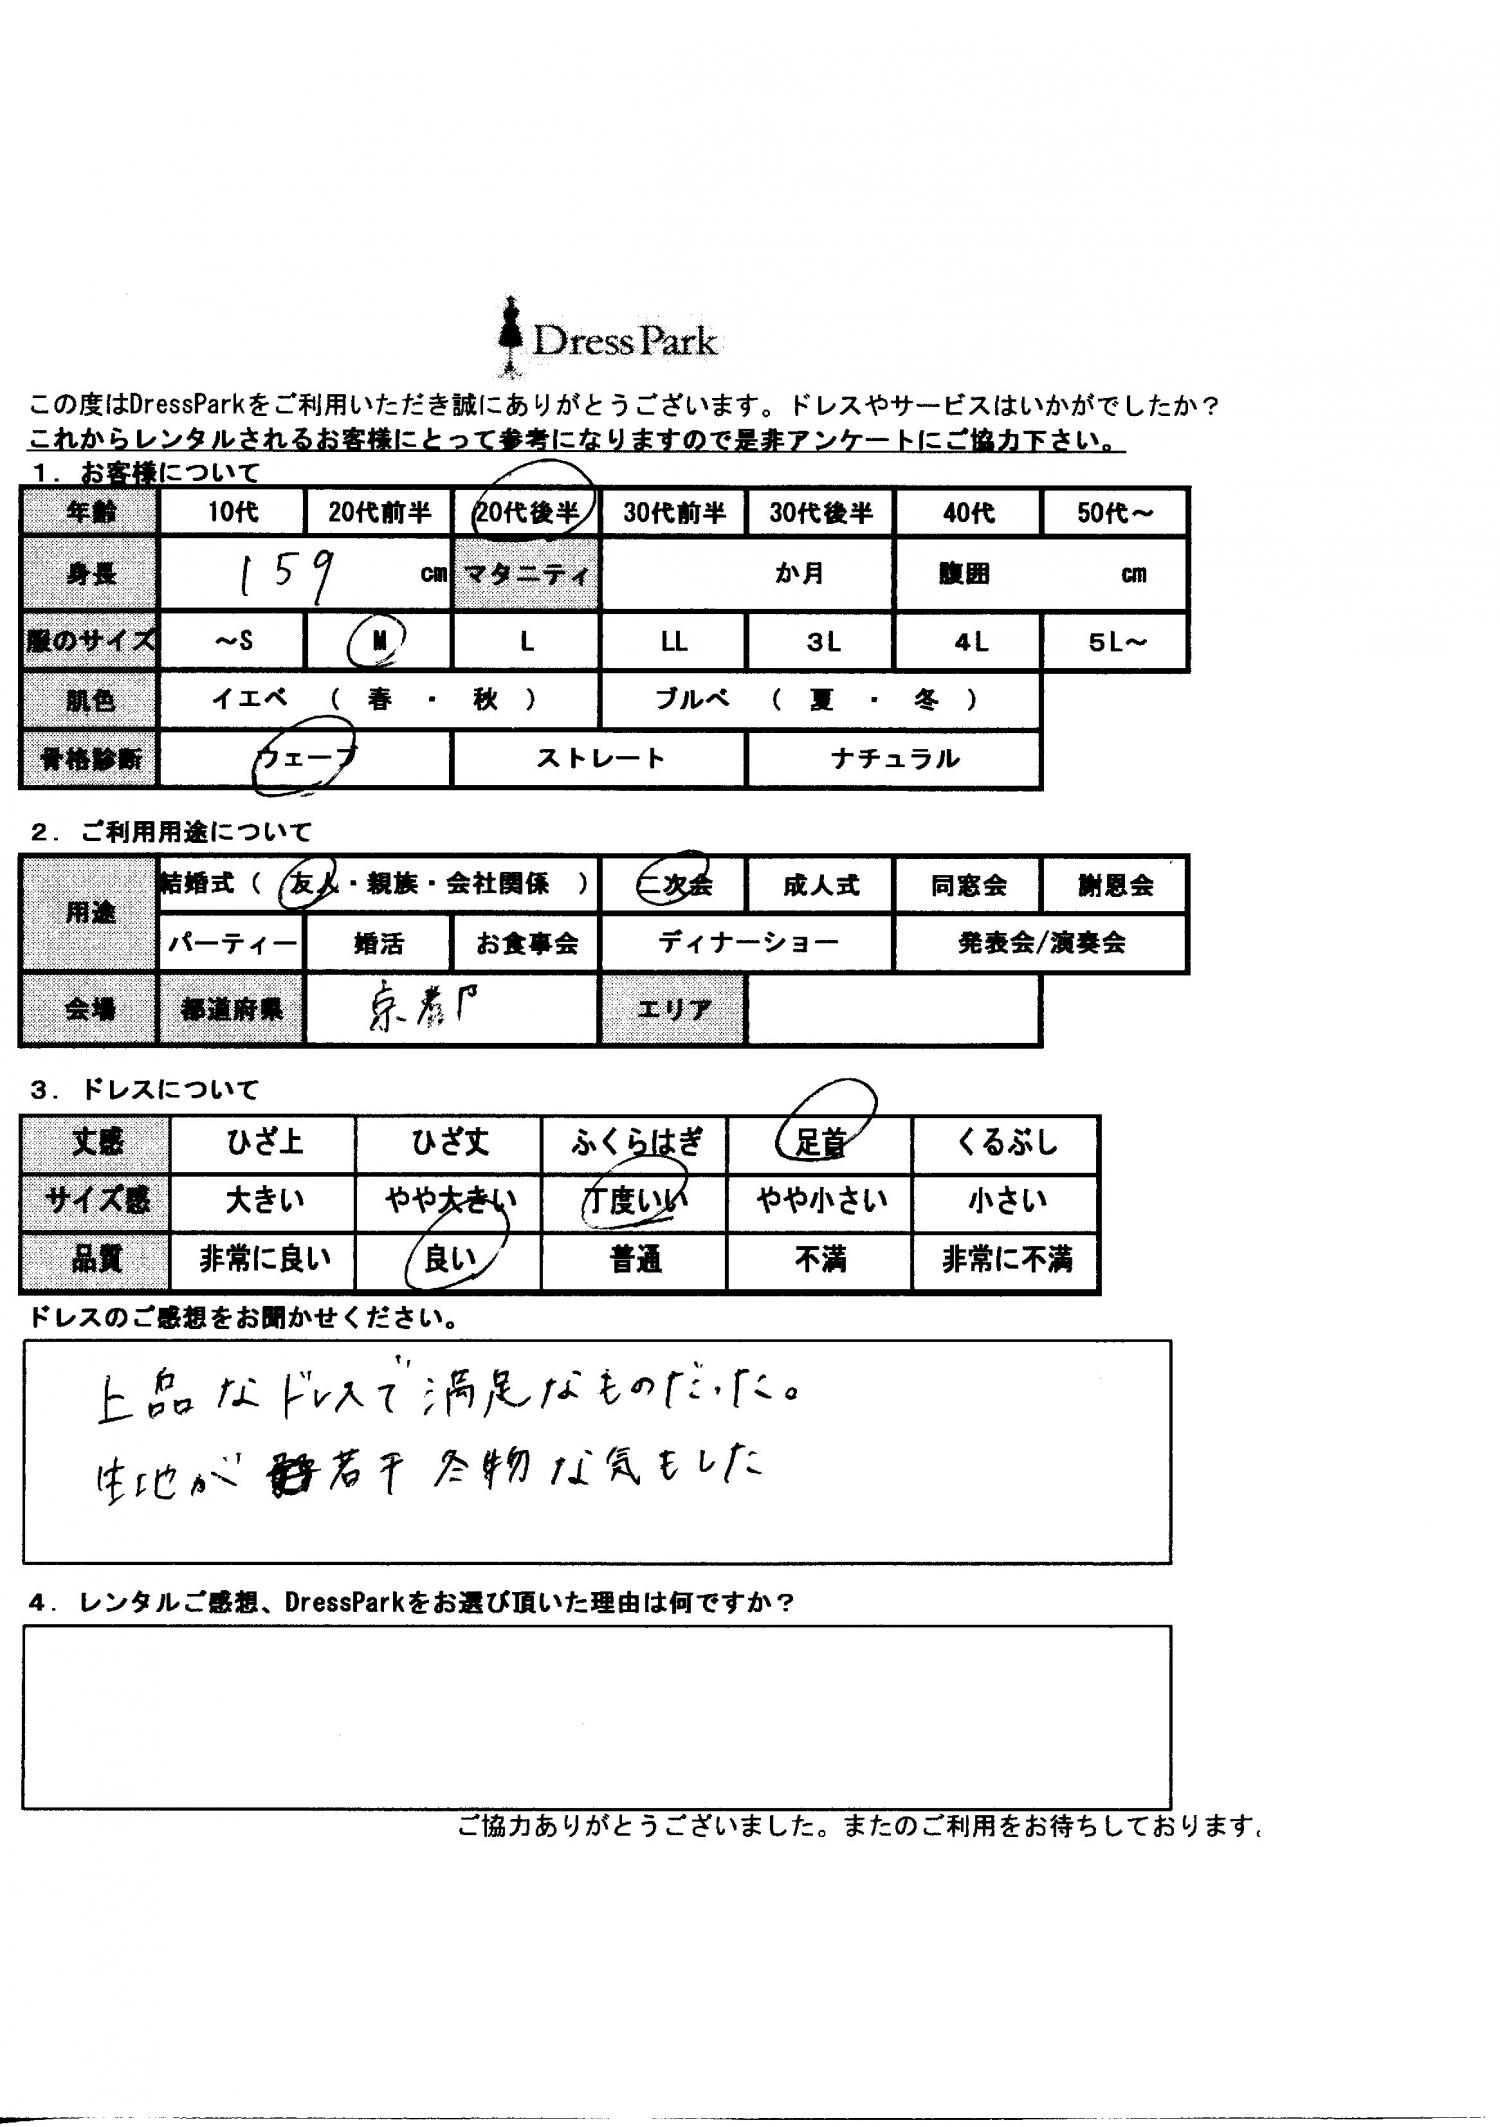 DressPark
この度はDressParkをご利用いただき誠にありがとうございます。ドレスやサービスはいかがでしたか？
これからレンタルされるお客様にとって参考になりますので是非アンケートにご協力下さい。
1. お客様について
年齢 10代 20代前半 20代後半 30代前半 30代後半 40代 50代～
身長 159 cm マタニティ か月 腹囲 cm
服のサイズ ～S M L LL 3L 4L 5L～
肌色 イエベ （ 春 ・ 秋 ） ブルベ （ 夏 ・ 冬 ）
骨格診断 ウェーブ ストレート ナチュラル
2. ご利用用途について
用途 結婚式（ 友人・親族・会社関係 ） 二次会 成人式 同窓会 謝恩会
パーティー 婚活 お食事会 ディナーショー 発表会/演奏会
会場 都道府県 京都 エリア
3. ドレスについて
丈感 ひざ上 ひざ丈 ふくらはぎ 足首 くるぶし
サイズ感 大きい やや大きい 丁度いい やや小さい 小さい
品質 非常に良い 良い 普通 不満 非常に不満
ドレスのご感想をお聞かせください。
上品なドレスで満足なものだった。
生地が若干冬物な気もした
4. レンタルご感想、DressParkをお選び頂いた理由は何ですか？
ご協力ありがとうございました。またのご利用をお待ちしております。